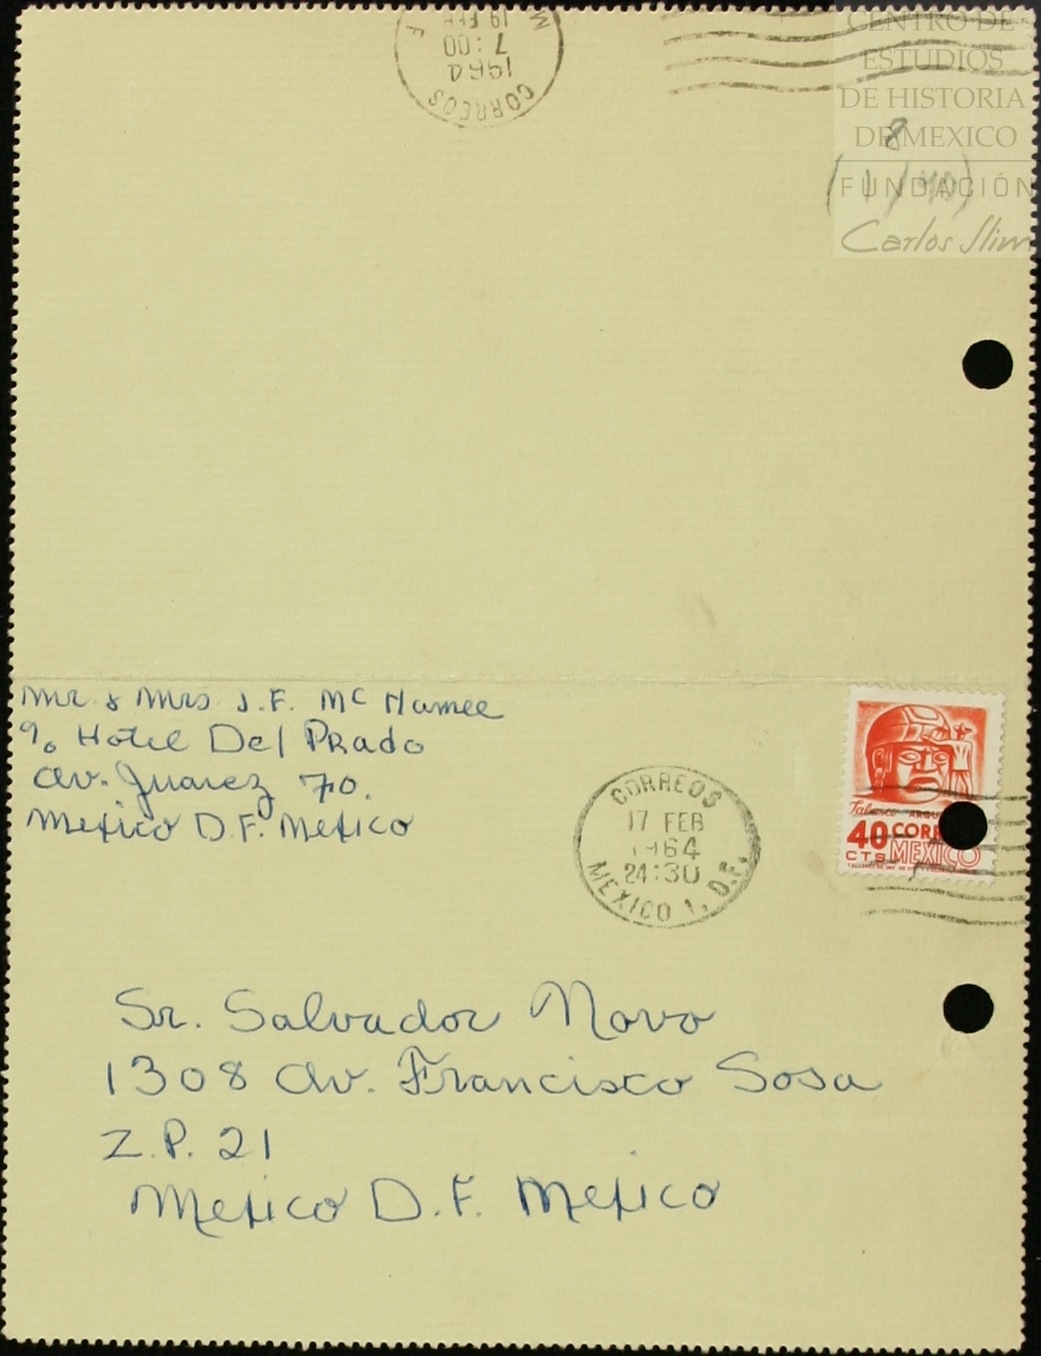 CORREOS
1964
7:00
19 FEB
CENTRO DE
ESTUDIOS
DE HISTORIA
DE MEXICO
FUNDACIÓN
Carlos Slim
8
Mr & Mrs J.F. McNamee
c/o Hotel Del Prado
Av. Juarez 70.
Mexico D.F. Mexico
CORREOS
17 FEB
1964
24:30
MEXICO 1, D.F.
Tabasco
40 CORR
CTS MEXICO
Sr. Salvador Novo
1308 Av. Francisco Sosa
Z.P. 21
Mexico D.F. Mexico